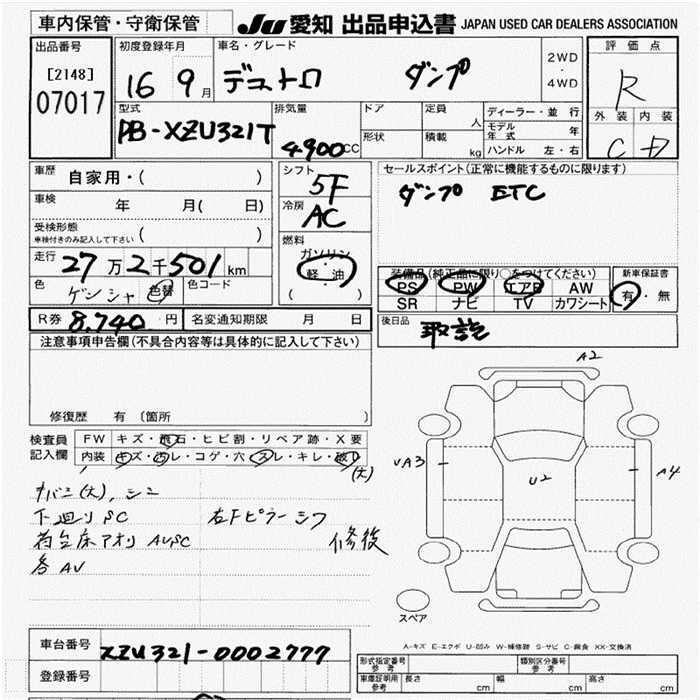 車内保管・守衛保管 JU 愛知 出品申込書 JAPAN USED CAR DEALERS ASSOCIATION
出品番号 初度登録年月 車名・グレード 2WD ・ 4WD 評価点
[2148]
07017 16 9月 デュトロ ダンプ R
型式 排気量 ドア 定員 人 ディーラー・並行 外装 内装
PB-XZU321T 4900CC 形状 積載 kg モデル年式 年 C D
ハンドル 左・右
車歴 自家用・( ) シフト 5F セールスポイント(正常に機能するものに限ります)
車検 年 月( 日) 冷房 AC ダンプ ETC
受検形態 ( )
車検付きのみ記入して下さい
燃料 ガソリン・軽油 ( )
走行 27万2千501km
装備品(純正品に限り○をつけてください) 新車保証書
色 ゲンシャ 色替 色コード PS PW エアB AW 有・無
SR ナビ TV カワシート
R券 8,740円 名変通知期限 月 日 後日品 取説
注意事項申告欄(不具合内容等は具体的に記入して下さい)
修復歴 有 〔箇所 〕
検査員記入欄 FW キズ・飛石・ヒビ割・リペア跡・X要
内装 キズ・汚レ・コゲ・穴・スレ・キレ・破レ
(大)
下廻り SC 右Fピラーシワ
荷台床アオリ AUSC 修後
各 AU
A2
UA3 U2 A4
スペア
A-キズ E-エクボ U-凹み W-補修跡 S-サビ C-腐食 XX-交換済
車台番号 XZU321-0002777
登録番号
形式指定番号 参考 類別区分番号 参考
車庫証明用 参考 長さ cm 幅 cm 高さ cm